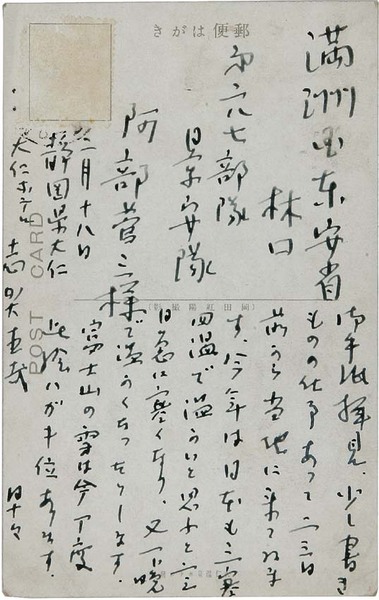 郵便はがき
満洲国東安省
林口
第六七部隊
阿部菅三様
二月十八日
静岡県大仁
大仁ホテル
志賀直哉
御手紙拝見、少し書き
ものの仕事あつて二三日
前から当地に来てゐま
す、今年は日本も三寒
四温で温かいと思ふと二三
日急に寒くなり、又一晩
で温かくなつたりします。
富士山の雪は今丁度
此絵ハガキ位あります。
POST CARD